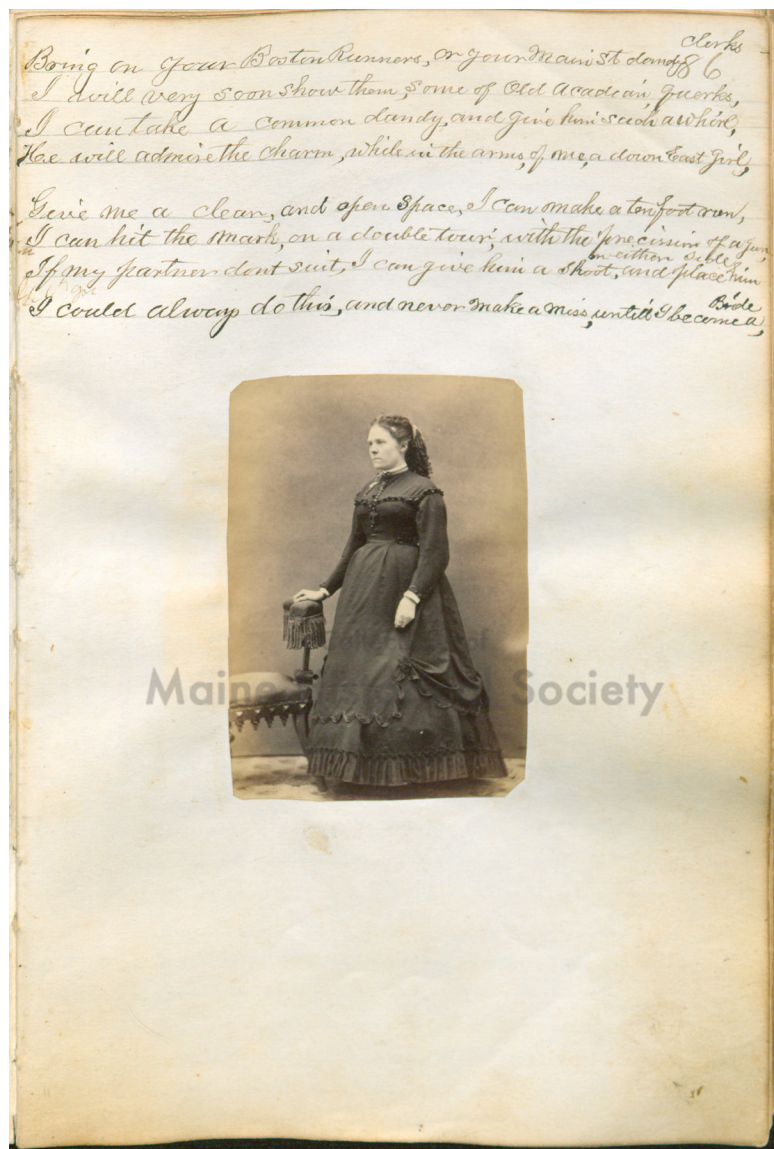 Bring on your Boston Runners, or your Main St dandy clerks
86
I will very soon show them, some of Old Acadean querks,
I can take a common dandy, and give him such a whirl,
He will admire the charm, while in the arms, of me, a down East Girl,
Give me a clear, and open space, I can make a ten foot run,
I can hit the mark, on a double tour, with the precission of a gun,
If my partner dont suit, I can give him a shoot, and place him neither side
I could always do this, and never make a miss, untill I become a Bride,
Collections of
Maine Historical Society